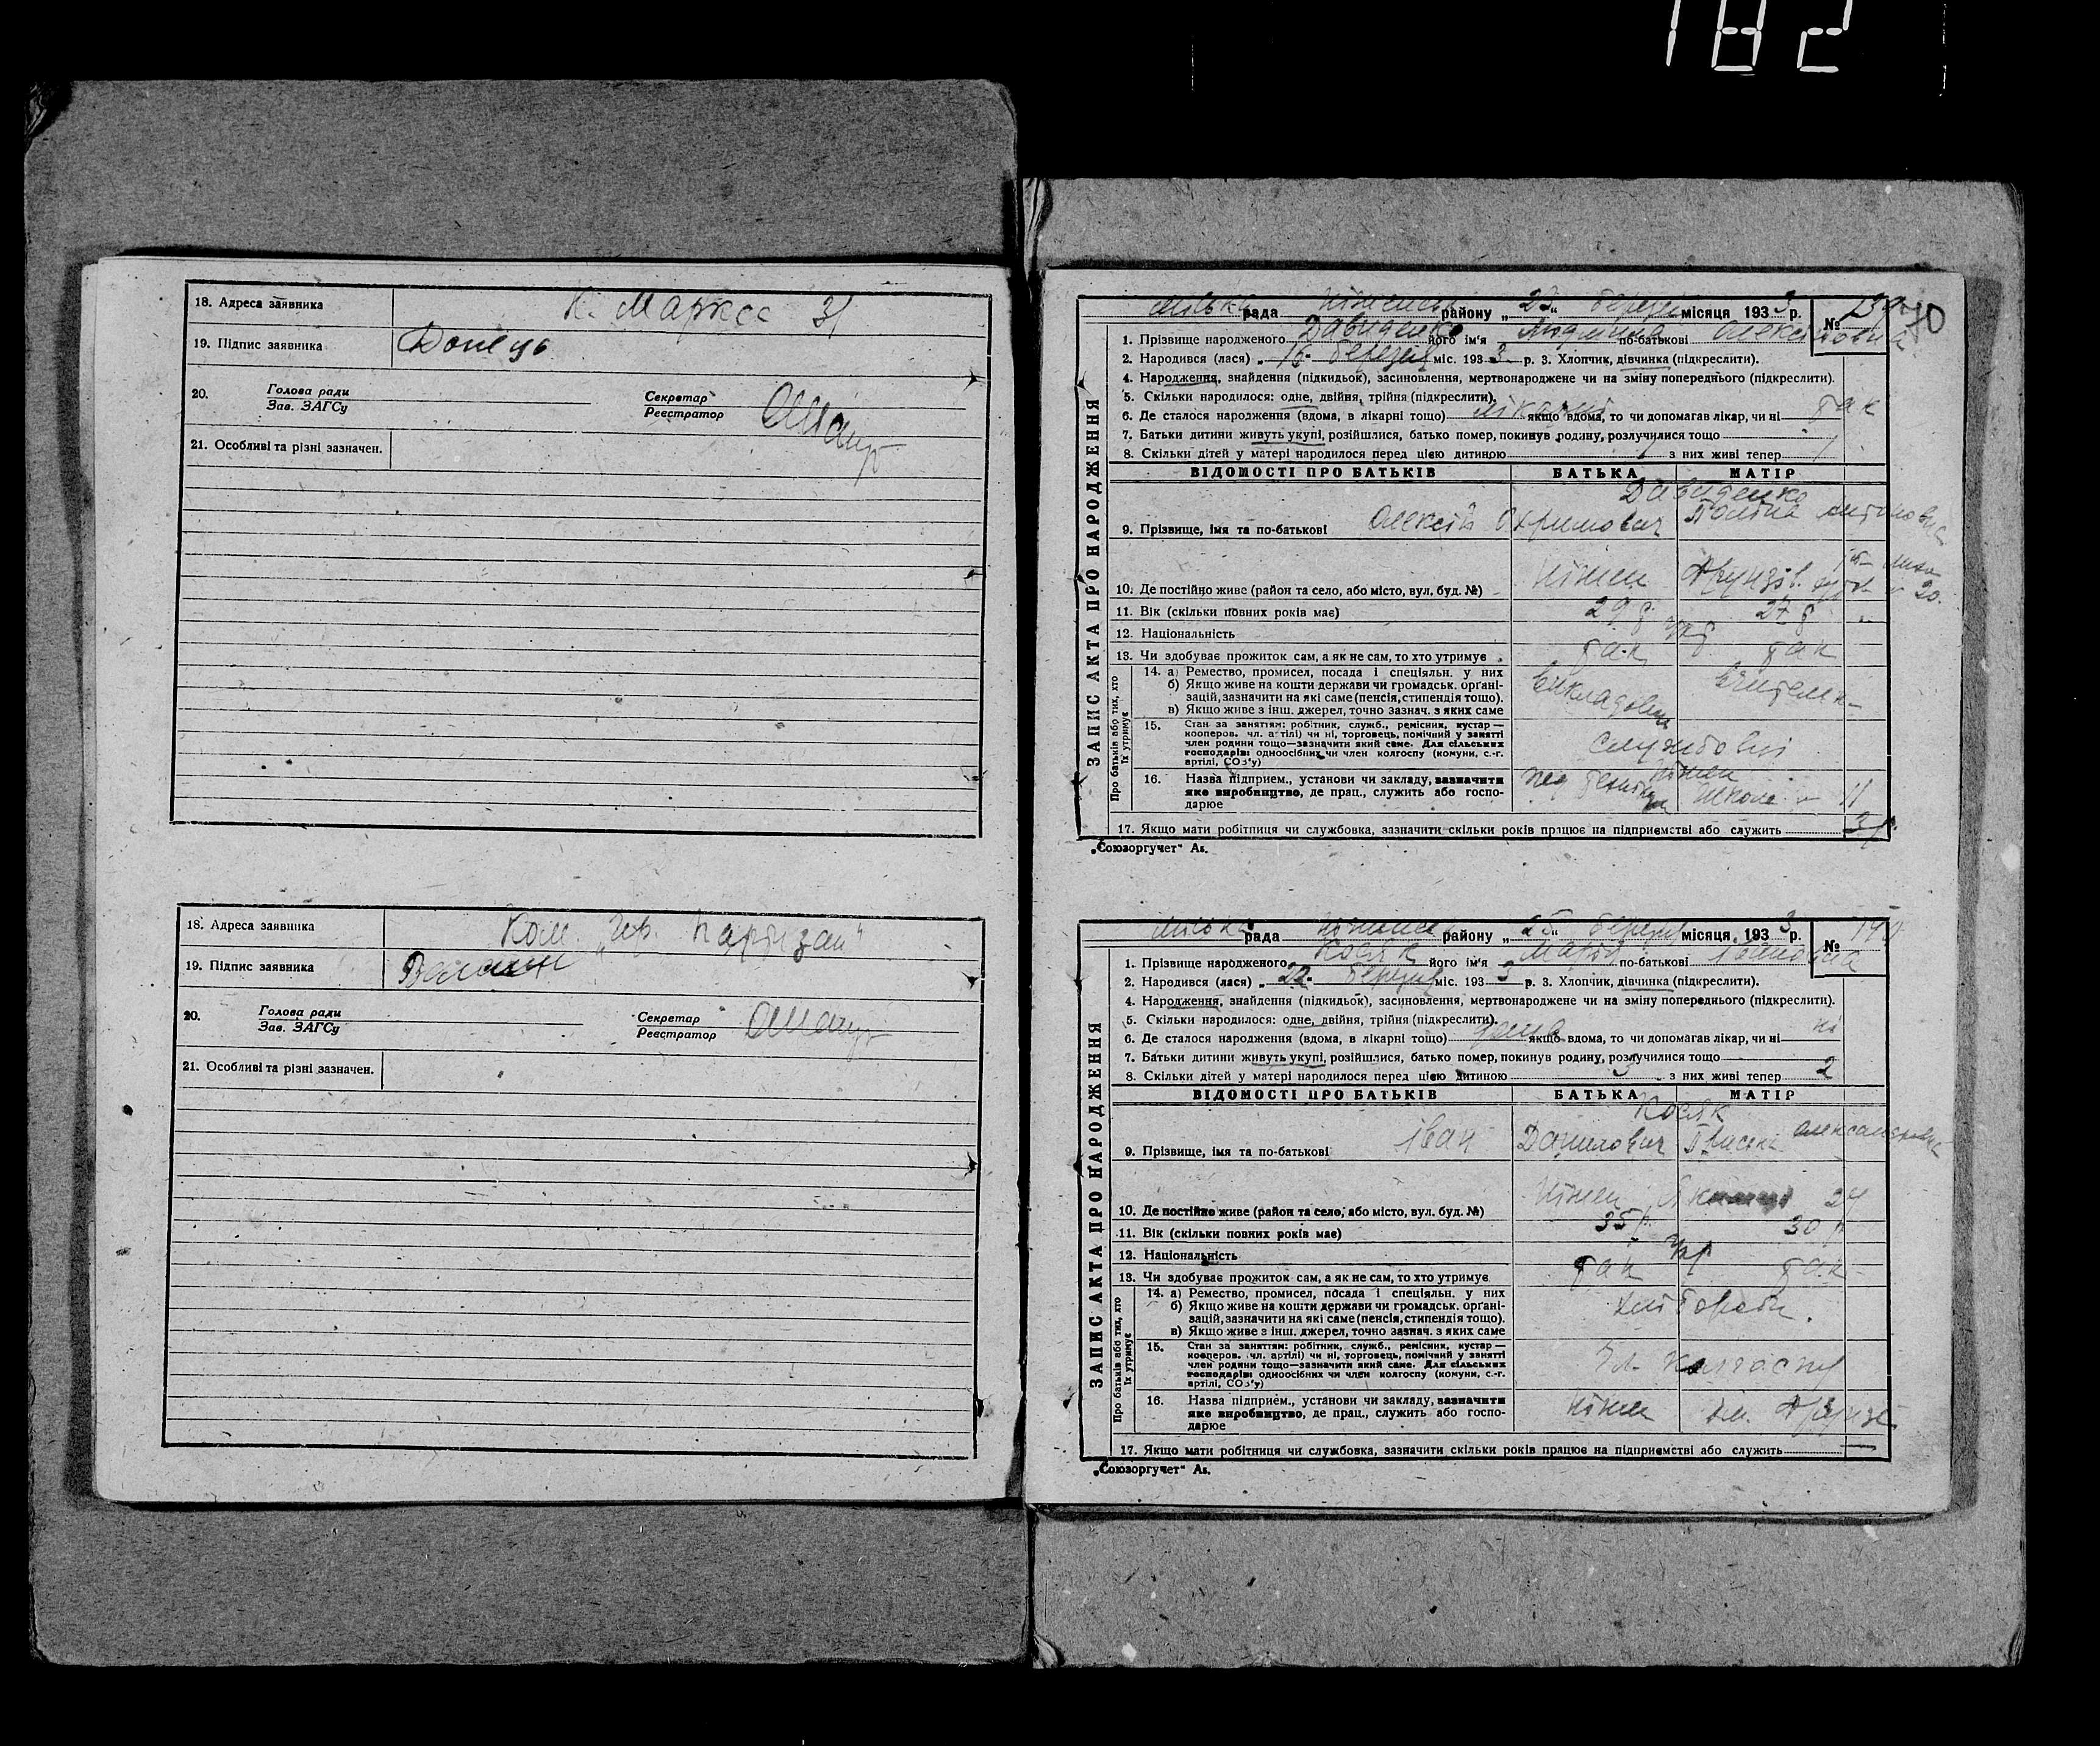 182
18. Адреса заявника К. Маркса 31
19. Підпис заявника Донець
20. Голова ради
Зав. ЗАГСу
Секретар
Реєстратор
21. Особливі та різні зазначен.
18. Адреса заявника Ком. „Чр. партизан"
19. Підпис заявника
20. Голова ради
Зав. ЗАГСу
Секретар
Реєстратор
21. Особливі та різні зазначен.
70
ЗАПИС АКТА ПРО НАРОДЖЕННЯ
Міська рада Ніженськ району „25" березня місяця 1933 р. № 139
1. Прізвище народженого Давиденко його ім'я Людмила по-батькові Олексіївна
2. Народився (лася) „16" березня міс. 1933 р. 3. Хлопчик, дівчинка (підкреслити).
4. Народження, знайдення (підкидьок), засиновлення, мертвонароджене чи на зміну попереднього (підкреслити).
5. Скільки народилося: одне, двійня, трійня (підкреслити).
6. Де сталося народження (вдома, в лікарні тощо) лікарні якщо вдома, то чи допомагав лікар, чи ні так
7. Батьки дитини живуть укупі, розійшлися, батько помер, покинув родину, розлучилися тощо
8. Скільки дітей у матері народилося перед цією дитиною 1 з них живі тепер 1
ВІДОМОСТІ ПРО БАТЬКІВ БАТЬКА МАТІР
Давиденко
9. Прізвище, імя та по-батькові Олексій Охримович
10. Де постійно живе (район та село, або місто, вул. буд. №) Ніжен 20.
11. Вік (скільки повних років має) 29 р. 27 р.
12. Національність укр
13. Чи здобуває прожиток сам, а як не сам, то хто утримує так так
Про батьків або тих, хто їх утримує
14. а) Ремество, промисел, посада і спеціяльн. у них
б) Якщо живе на кошти держави чи громадськ. органі-
зацій, зазначити на які саме (пенсія, стипендія тощо).
в) Якщо живе з інш. джерел, точно зазнач. з яких саме
Викладовець Вчителька
15. Стан за заняттям: робітник, служб., ремісник, кустар —
кооперов. чл. артілі) чи ні, торговець, помічний у занятті
член родини тощо—зазначити який саме. Для сільських
господарів: одноосібних чи член колгоспу (комуни, с.-г.
артілі, СОЗ'у)
Службовці
16. Назва підприєм., установи чи закладу, зазначити
яке виробництво, де прац., служить або госпо-
дарює
Ніжен
Пед технікум Школа 11
17. Якщо мати робітниця чи службовка, зазначити скільки років працює на підприємстві або служить 3 р.
„Союзоргучет" А₅.
ЗАПИС АКТА ПРО НАРОДЖЕННЯ
Міська рада Ніженськ району „25" березня місяця 1933 р. № 140
1. Прізвище народженого Косяк його ім'я Марія по-батькові Івановна
2. Народився (лася) „22" березня міс. 1933 р. 3. Хлопчик, дівчинка (підкреслити).
4. Народження, знайдення (підкидьок), засиновлення, мертвонароджене чи на зміну попереднього (підкреслити).
5. Скільки народилося: одне, двійня, трійня (підкреслити).
6. Де сталося народження (вдома, в лікарні тощо) дома якщо вдома, то чи допомагав лікар, чи ні ні
7. Батьки дитини живуть укупі, розійшлися, батько помер, покинув родину, розлучилися тощо
8. Скільки дітей у матері народилося перед цією дитиною 3 з них живі тепер 2
ВІДОМОСТІ ПРО БАТЬКІВ БАТЬКА МАТІР
Косяк
9. Прізвище, імя та по-батькові Іван Данилович
10. Де постійно живе (район та село, або місто, вул. буд. №) Ніжен 24
11. Вік (скільки повних років має) 35 р. 30 р.
12. Національність укр
13. Чи здобуває прожиток сам, а як не сам, то хто утримує так так
Про батьків або тих, хто їх утримує
14. а) Ремество, промисел, посада і спеціяльн. у них
б) Якщо живе на кошти держави чи громадськ. органі-
зацій, зазначити на які саме (пенсія, стипендія тощо).
в) Якщо живе з інш. джерел, точно зазнач. з яких саме
хлібороби
15. Стан за заняттям: робітник, служб., ремісник, кустар —
кооперов. чл. артілі) чи ні, торговець, помічний у занятті
член родини тощо—зазначити який саме. Для сільських
господарів: одноосібних чи член колгоспу (комуни, с.-г.
артілі, СОЗ'у)
Чл. колгоспу
16. Назва підприєм., установи чи закладу, зазначити
яке виробництво, де прац., служить або госпо-
дарює
Ніжен ім. Фрунзе
17. Якщо мати робітниця чи службовка, зазначити скільки років працює на підприємстві або служить —
„Союзоргучет" А₅.